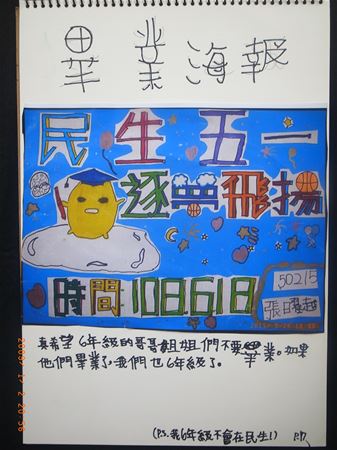 畢業海報
民生五一
逐夢飛揚
時間108.6.18
50215
真希望6年級的哥哥姐姐們不要畢業。如果
他們畢業了,我們也6年級了。
(P.S.我6年級不會在民生!)